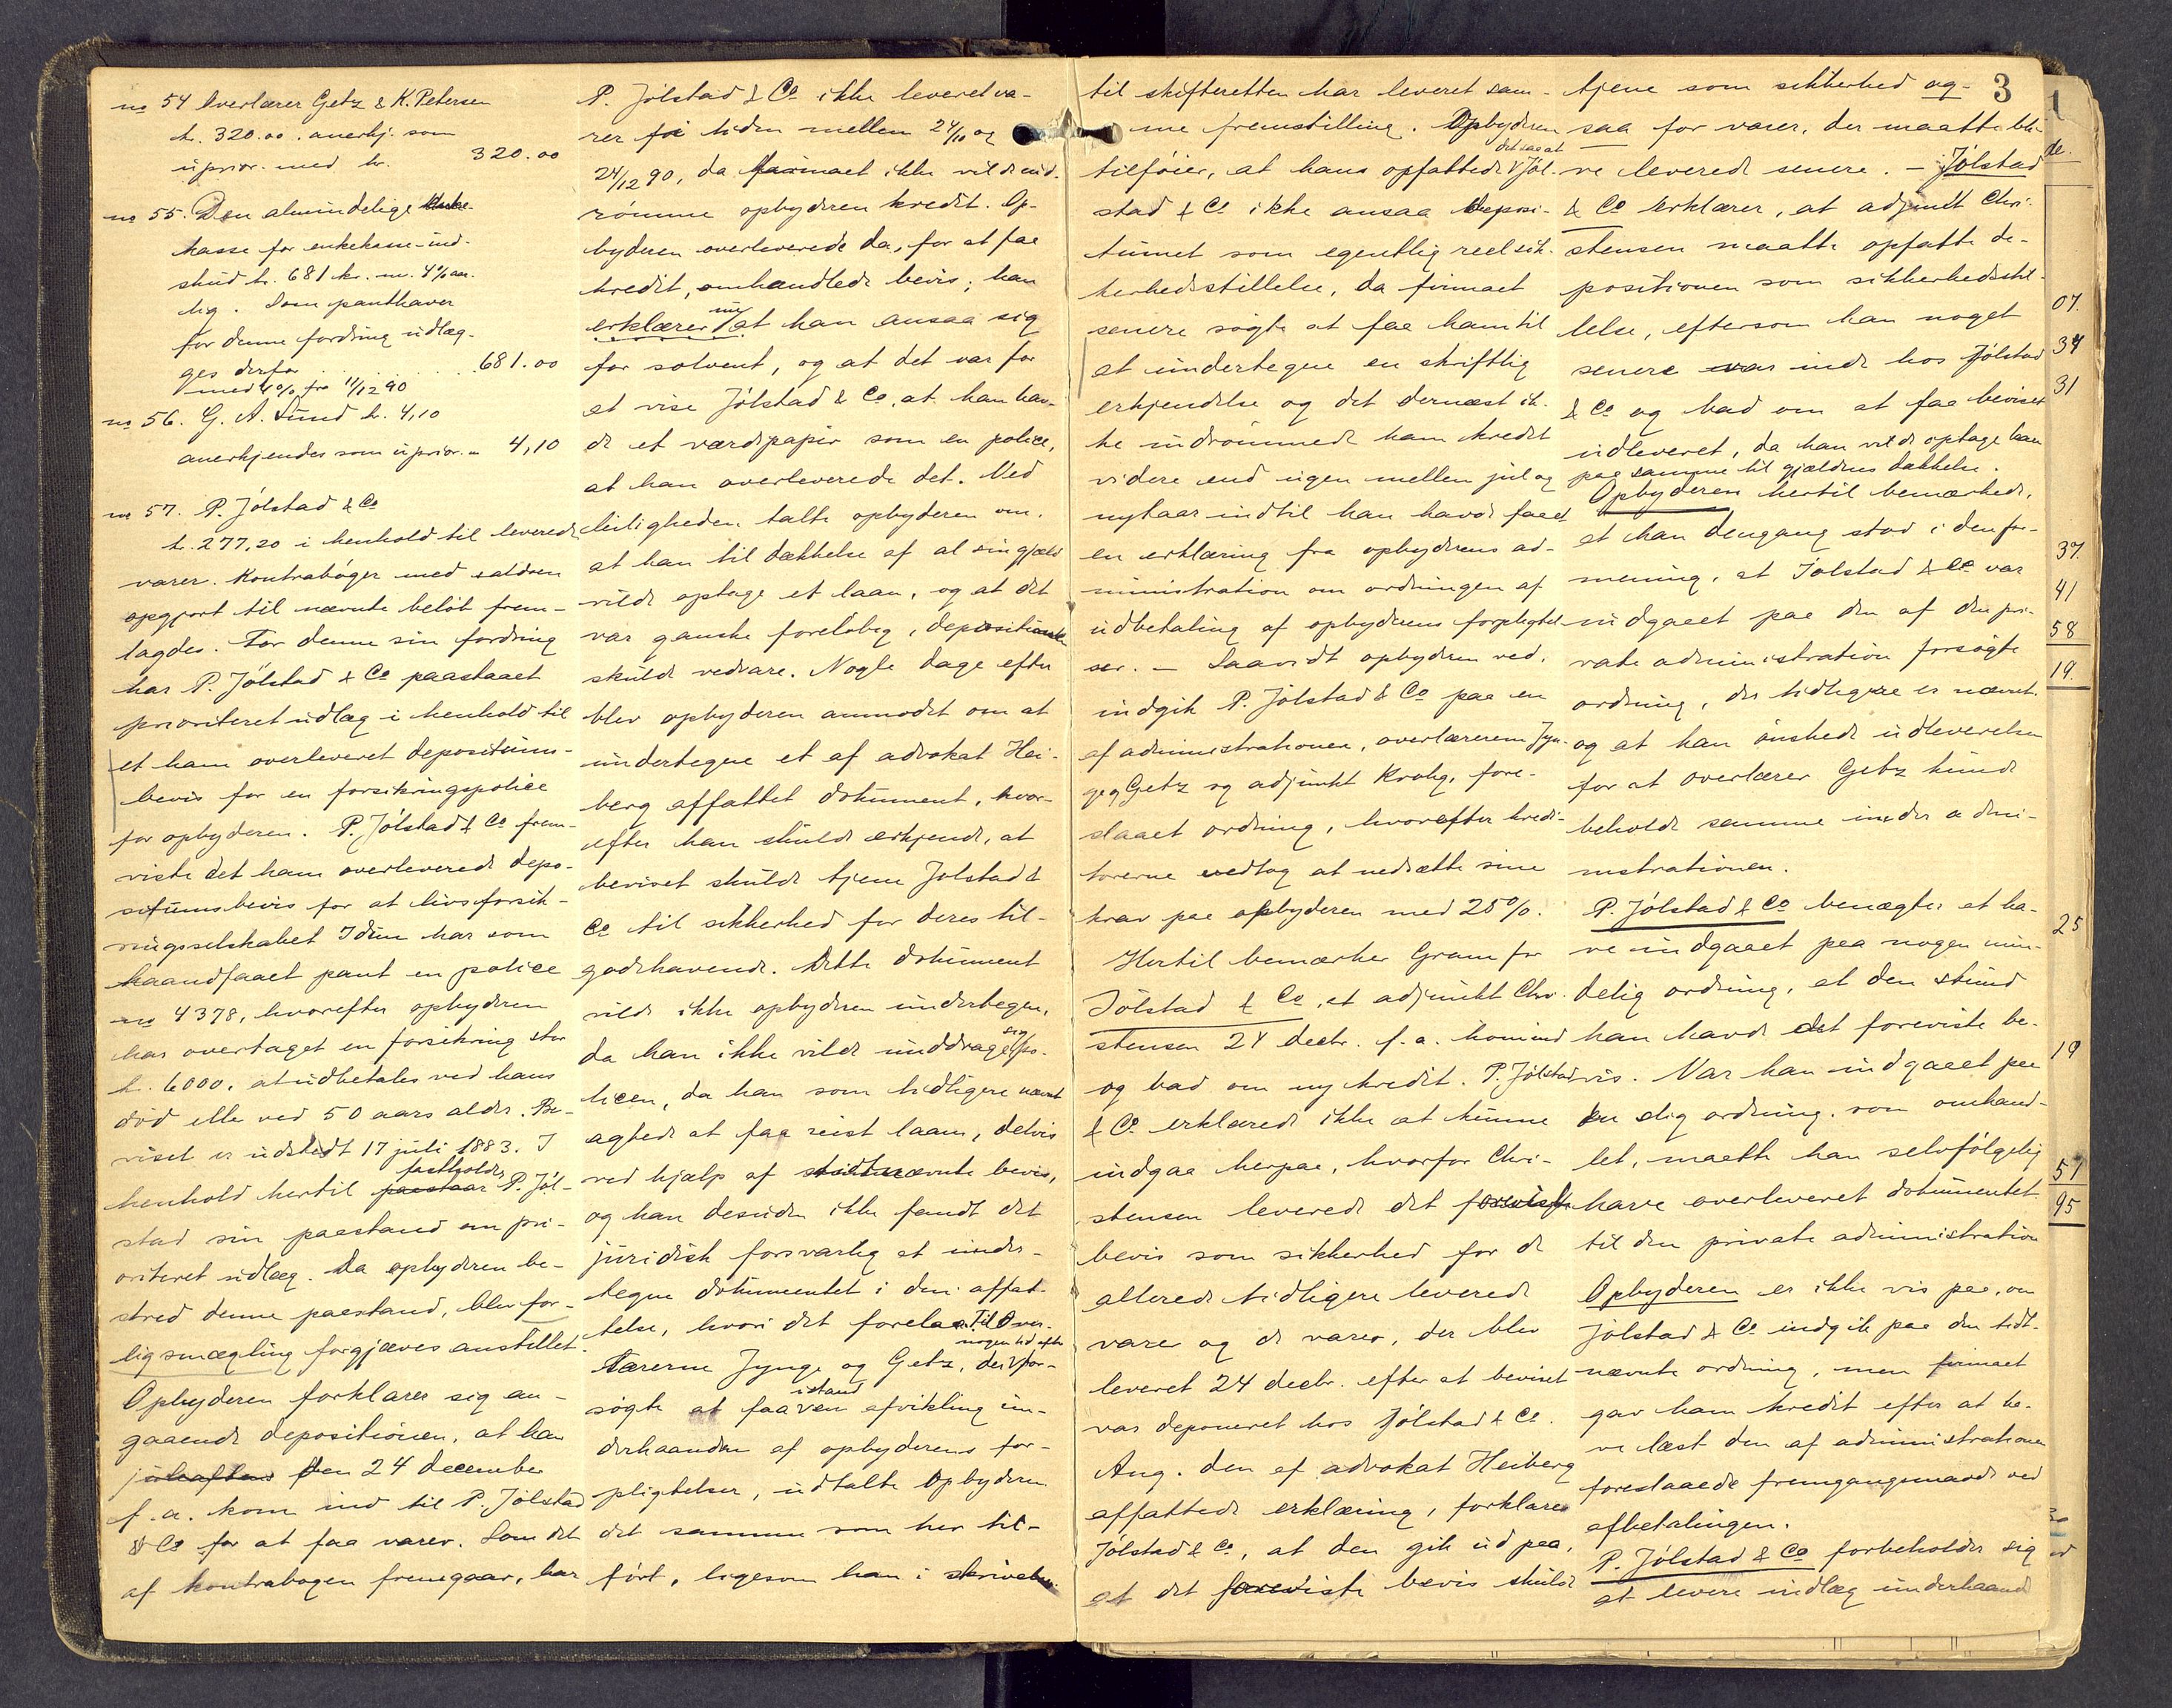 no 54 Overlærer Getz & K. Petersen
kr. 320.00. anerkj. som
uprior. med kr. 320.00
no 55. Den almindelige
kasse for enkekasse-ind-
skud kr. 681 kr. m. 4% aar-
lig. Som panthaver
for denne fordring udlæg-
ges derfor . . . . . . 681.00
med 4% fra 11/12 90
no 56. G. A. Lund kr. 4,10
anerkjendes som uprior. m 4,10
no 57. P. Jølstad & Co
kr. 277,20 i henhold til leverede
varer. Kontrabøger med saldoen
opgjort til nævnte beløb frem-
lagdes. For denne sin fordring
har P. Jølstad & Co paastaaet
prioriteret udlæg i henhold til
et ham overleveret depositums-
bevis for en forsikringspolice
for opbyderen. P. Jølstad & Co frem-
viste det ham overleverede depo-
situmsbevis for at livsforsik-
ringsselskabet Idun har som
haandfaaet pant en police
no 4378, hvorefter opbyderen
har overtaget en forsikring stor
kr. 6000, at udbetales ved hans
død eller ved 50 aars alder. Be-
viset er udstedt 17 juli 1883. I
henhold hertil paastaar fastholder P. Jøl-
stad sin paastand om pri-
oriteret udlæg. Da opbyderen be-
stred denne paastand, blev for-
ligsmægling forgjæves anstillet.
Opbyderen forklarer sig an-
gaaende depositionen, at han
juleaften den 24 december
f. a. kom ind til P. Jølstad
& Co for at faa varer. Som det
af kontrabogen fremgaar, har
P. Jølstad & Co ikke leveret va-
rer for tiden mellem 24/10 og
24/12 90, da firmaet ikke vilde ind-
rømme opbyderen kredit. Op-
byderen overleverede da, for at faa
kredit, omhandlede bevis; han
erklærer nu at han ansaa sig
for solvent, og at det var for
at vise Jølstad & Co, at han hav-
de et værdipapir som en police,
at han overleverede det. Ved
leiligheden talte opbyderen om,
at han til dækkelse af al sin gjæld
vilde optage et laan, og at det
var ganske foreløbig, depositionen
skulde vedvare. Nogle dage efter
blev opbyderen anmodet om at
undertegne et af advokat Hei-
berg affattet dokument, hvor-
efter han skulde erkjende, at
beviset skulde tjene Jølstad &
Co til sikkerhed for deres til-
godehavende. Dette dokument
vilde ikke opbyderen undertegne,
da han ikke vilde unddrage sig po-
licen, da han som tidligere nævnt
agtede at faa reist laan, delvis
ved hjælp af sidstnævnte bevis,
og han desuden ikke fandt det
juridisk forsvarlig at under-
tegne dokumentet i den affat-
telse, hvori det forelaa. Til Over-
lærerne Jynge og Getz, der nogen tid efter for-
søgte at faa istand en afvikling un-
derhaanden af opbyderens for-
pligtelser, udtalte Opbyderen
det samme som her til-
ført, ligesom han i skrivelse
til skifteretten har leveret sam-
me fremstilling. Opbyderen
tilføier, at hans opfattede det saa at Jøl-
stad & Co ikke ansaa deposi-
tumet som egentlig reel sik-
kerhedsstillelse, da firmaet
senere søgte at faa ham til
at undertegne en skriftlig
erkjendelse og det dernæst ik-
ke indrømmede ham kredit
videre end ugen mellem jul og
nytaar indtil han havde faaet
en erklæring fra opbyderens ad-
ministration om ordningen af
udbetaling af opbyderens forpligtel-
ser. — Saavidt opbyderen ved,
indgik P. Jølstad & Co paa en
af administrationen, overlærerne Jyn-
ge og Getz og adjunkt Krohg, fore-
slaaet ordning, hvorefter kredi-
torerne vedtog at nedsætte sine
krav paa opbyderen med 25%.
Hertil bemærker Gram for
Jølstad & Co, at adjunkt Chri-
stensen 24 decbr. f. a. kom ind
og bad om ny kredit. P. Jølstad
& Co erklærede ikke at kunne
indgaa herpaa, hvorfor Chri-
stensen leverede det foreviste
bevis som sikkerhed for de
allerede tidligere leverede
varer og de varer, der blev
leveret 24 decbr. efter at beviset
var deponeret hos Jølstad & Co.
Ang. den af advokat Heiberg
affattede erklæring, forklarer
Jølstad & Co, at den gik ud paa,
at det foreviste bevis skulde
tjene som sikkerhed og- 3
saa for varer, der maatte bli-
ve leverede senere. — Jølstad
& Co erklærer, at adjunkt Chri-
stensen maatte opfatte de-
positionen som sikkerhedsstil-
lelse, eftersom han noget
senere var inde hos Jølstad
& Co og bad om at faa beviset
udleveret, da han vilde optage laan
paa samme til gjældens dækkelse.
Opbyderen hertil bemærkede,
at han dengang stod i den for-
mening, at Jølstad & Co var
indgaaet paa den af den pri-
vate administration forsøgte
ordning, der tidligere er nævnt
og at han ønskede udleverelsen
for at overlærer Getz kunde
beholde samme under admi-
nistrationen.
P. Jølstad & Co benægter at ha-
ve indgaaet paa nogen min-
delig ordning, al den stund
han havde det foreviste be-
vis. Var han indgaaet paa
en slig ordning, som omhand-
let, maatte han selvfølgelig
have overleveret dokumentet
til den private administration
Opbyderen er ikke vis paa, om
Jølstad & Co indgik paa den tidt-
nævnte ordning, men firmaet
gav ham kredit efter at ha-
ve læst den af administrationen
foreslaaede fremgangsmaade ved
afbetalingen.
P. Jølstad & Co forbeholder sig
at levere indlæg underhaand
1
de.
07.
34
31
37.
41
58
19.
25
19
51
95